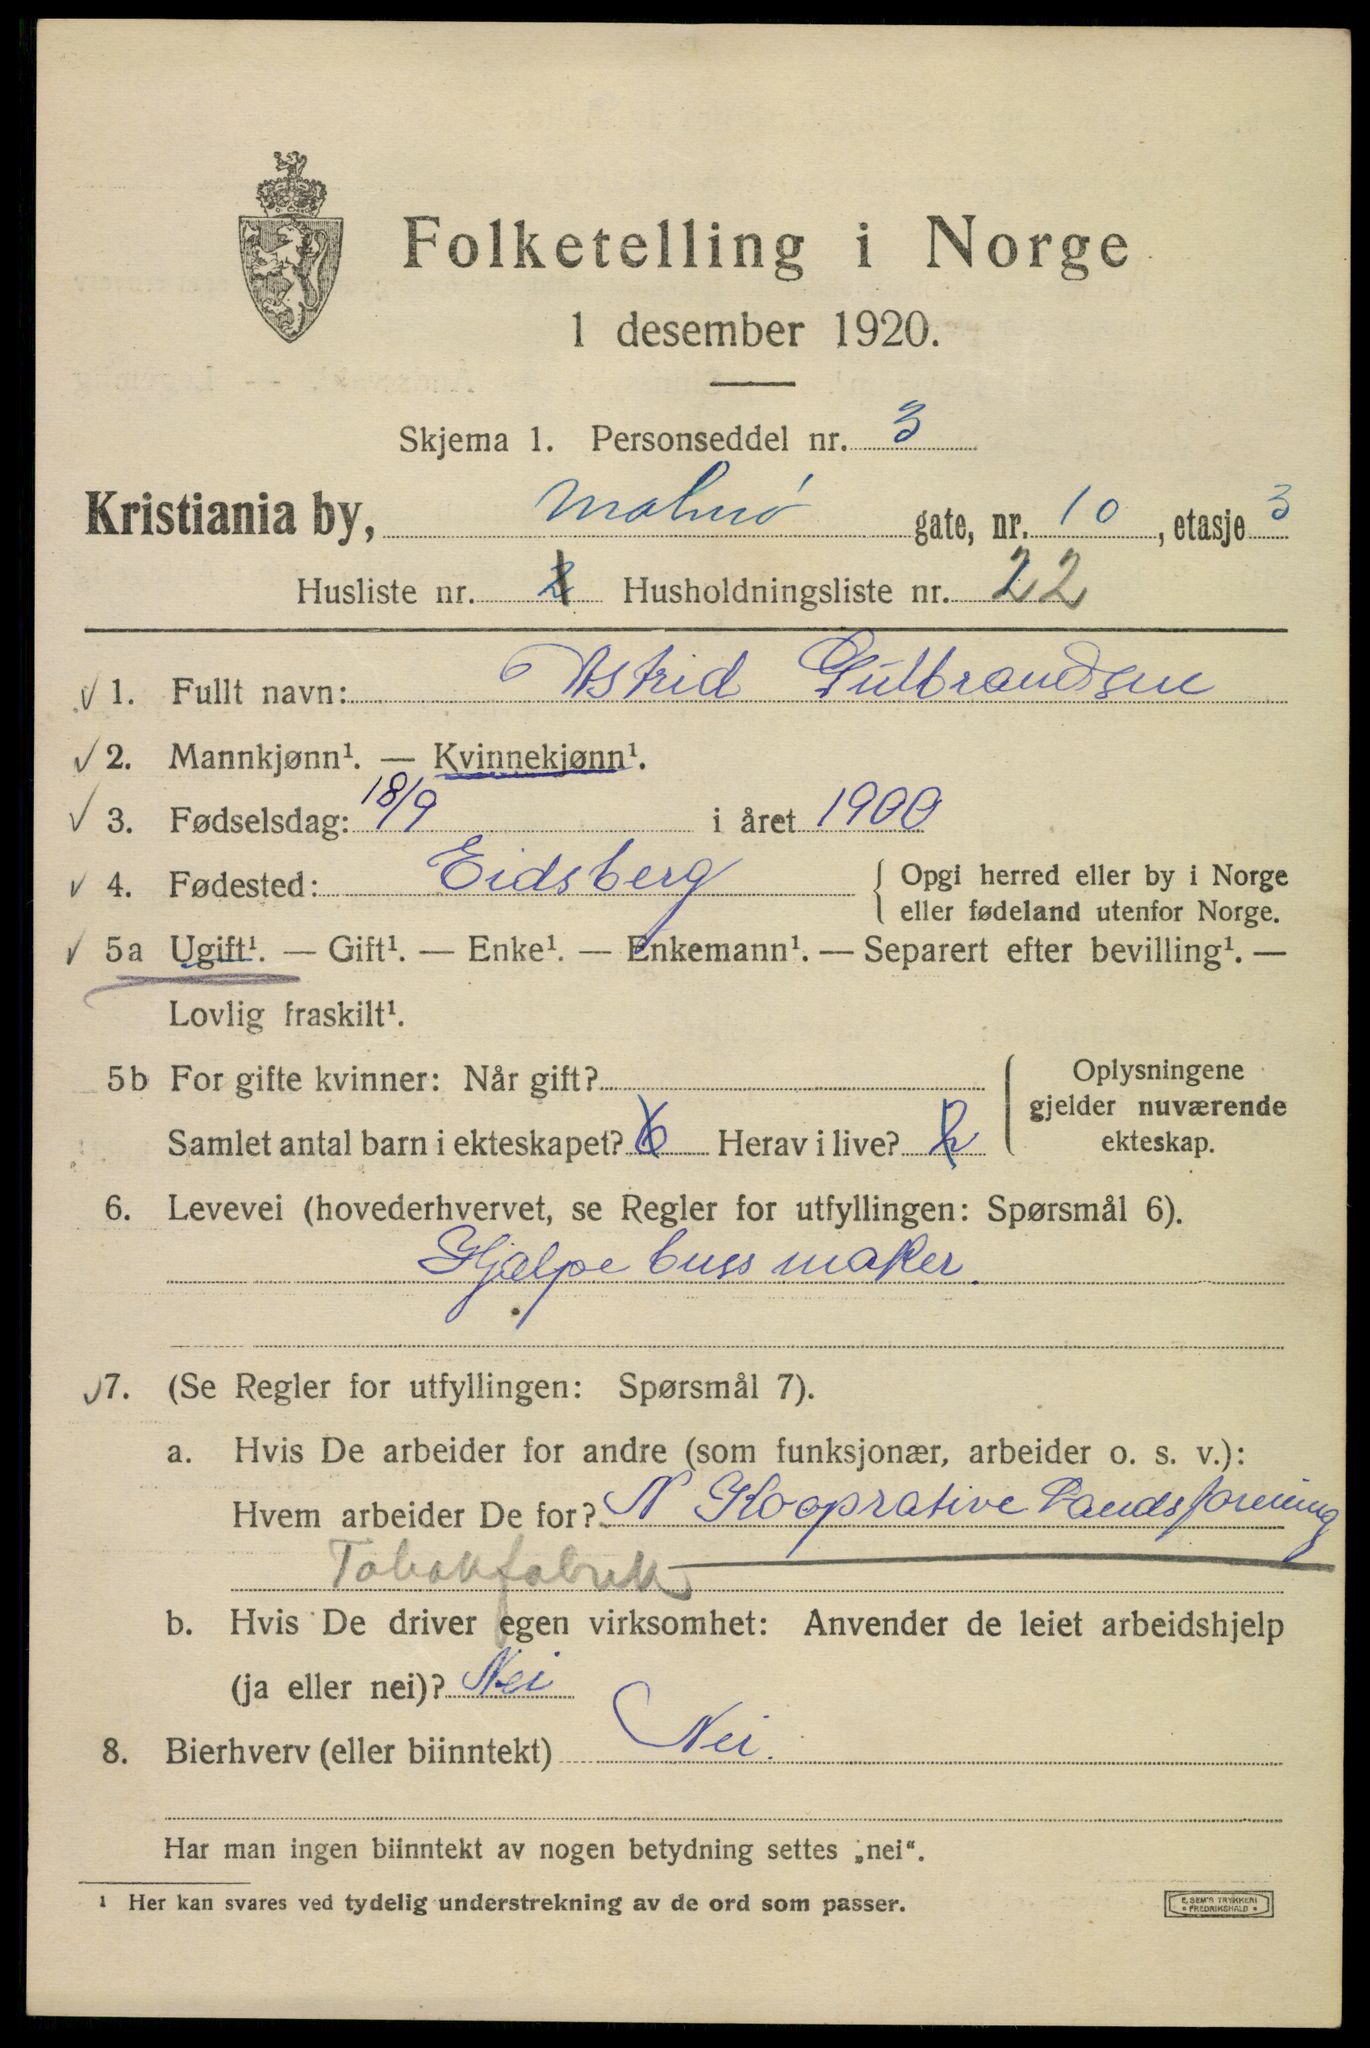 Folketelling i Norge
1 desember 1920.
Skjema 1. Personseddel nr. 3
Kristiania by, Malmö gate, nr. 10, etasje 3
Husliste nr. Husholdningsliste nr. 22
1. Fullt navn: Astrid Gulbrandsen
2. Mannkjønn¹. — Kvinnekjønn¹.
3. Fødselsdag: 18/9 i året 1900
4. Fødested: Eidsberg { Opgi herred eller by i Norge
eller fødeland utenfor Norge.
5a Ugift¹. — Gift¹. — Enke¹. — Enkemann¹. — Separert efter bevilling¹. —
Lovlig fraskilt¹.
5b For gifte kvinner: Når gift? { Oplysningene
gjelder nuværende
ekteskap.
Samlet antal barn i ekteskapet? 6 Herav i live? 2
6. Levevei (hovederhvervet, se Regler for utfyllingen: Spørsmål 6).
Hjælpe buss maker.
7. (Se Regler for utfyllingen: Spørsmål 7).
a. Hvis De arbeider for andre (som funksjonær, arbeider o. s. v.):
Hvem arbeider De for? N Kooprative Landsforening
Tobakfabrik
b. Hvis De driver egen virksomhet: Anvender de leiet arbeidshjelp
(ja eller nei)? Nei
8. Bierhverv (eller biinntekt) Nei.
Har man ingen biinntekt av nogen betydning settes „nei“.
¹ Her kan svares ved tydelig understrekning av de ord som passer.
E. SEM'S TRYKKERI
• FREDRIKSHALD •